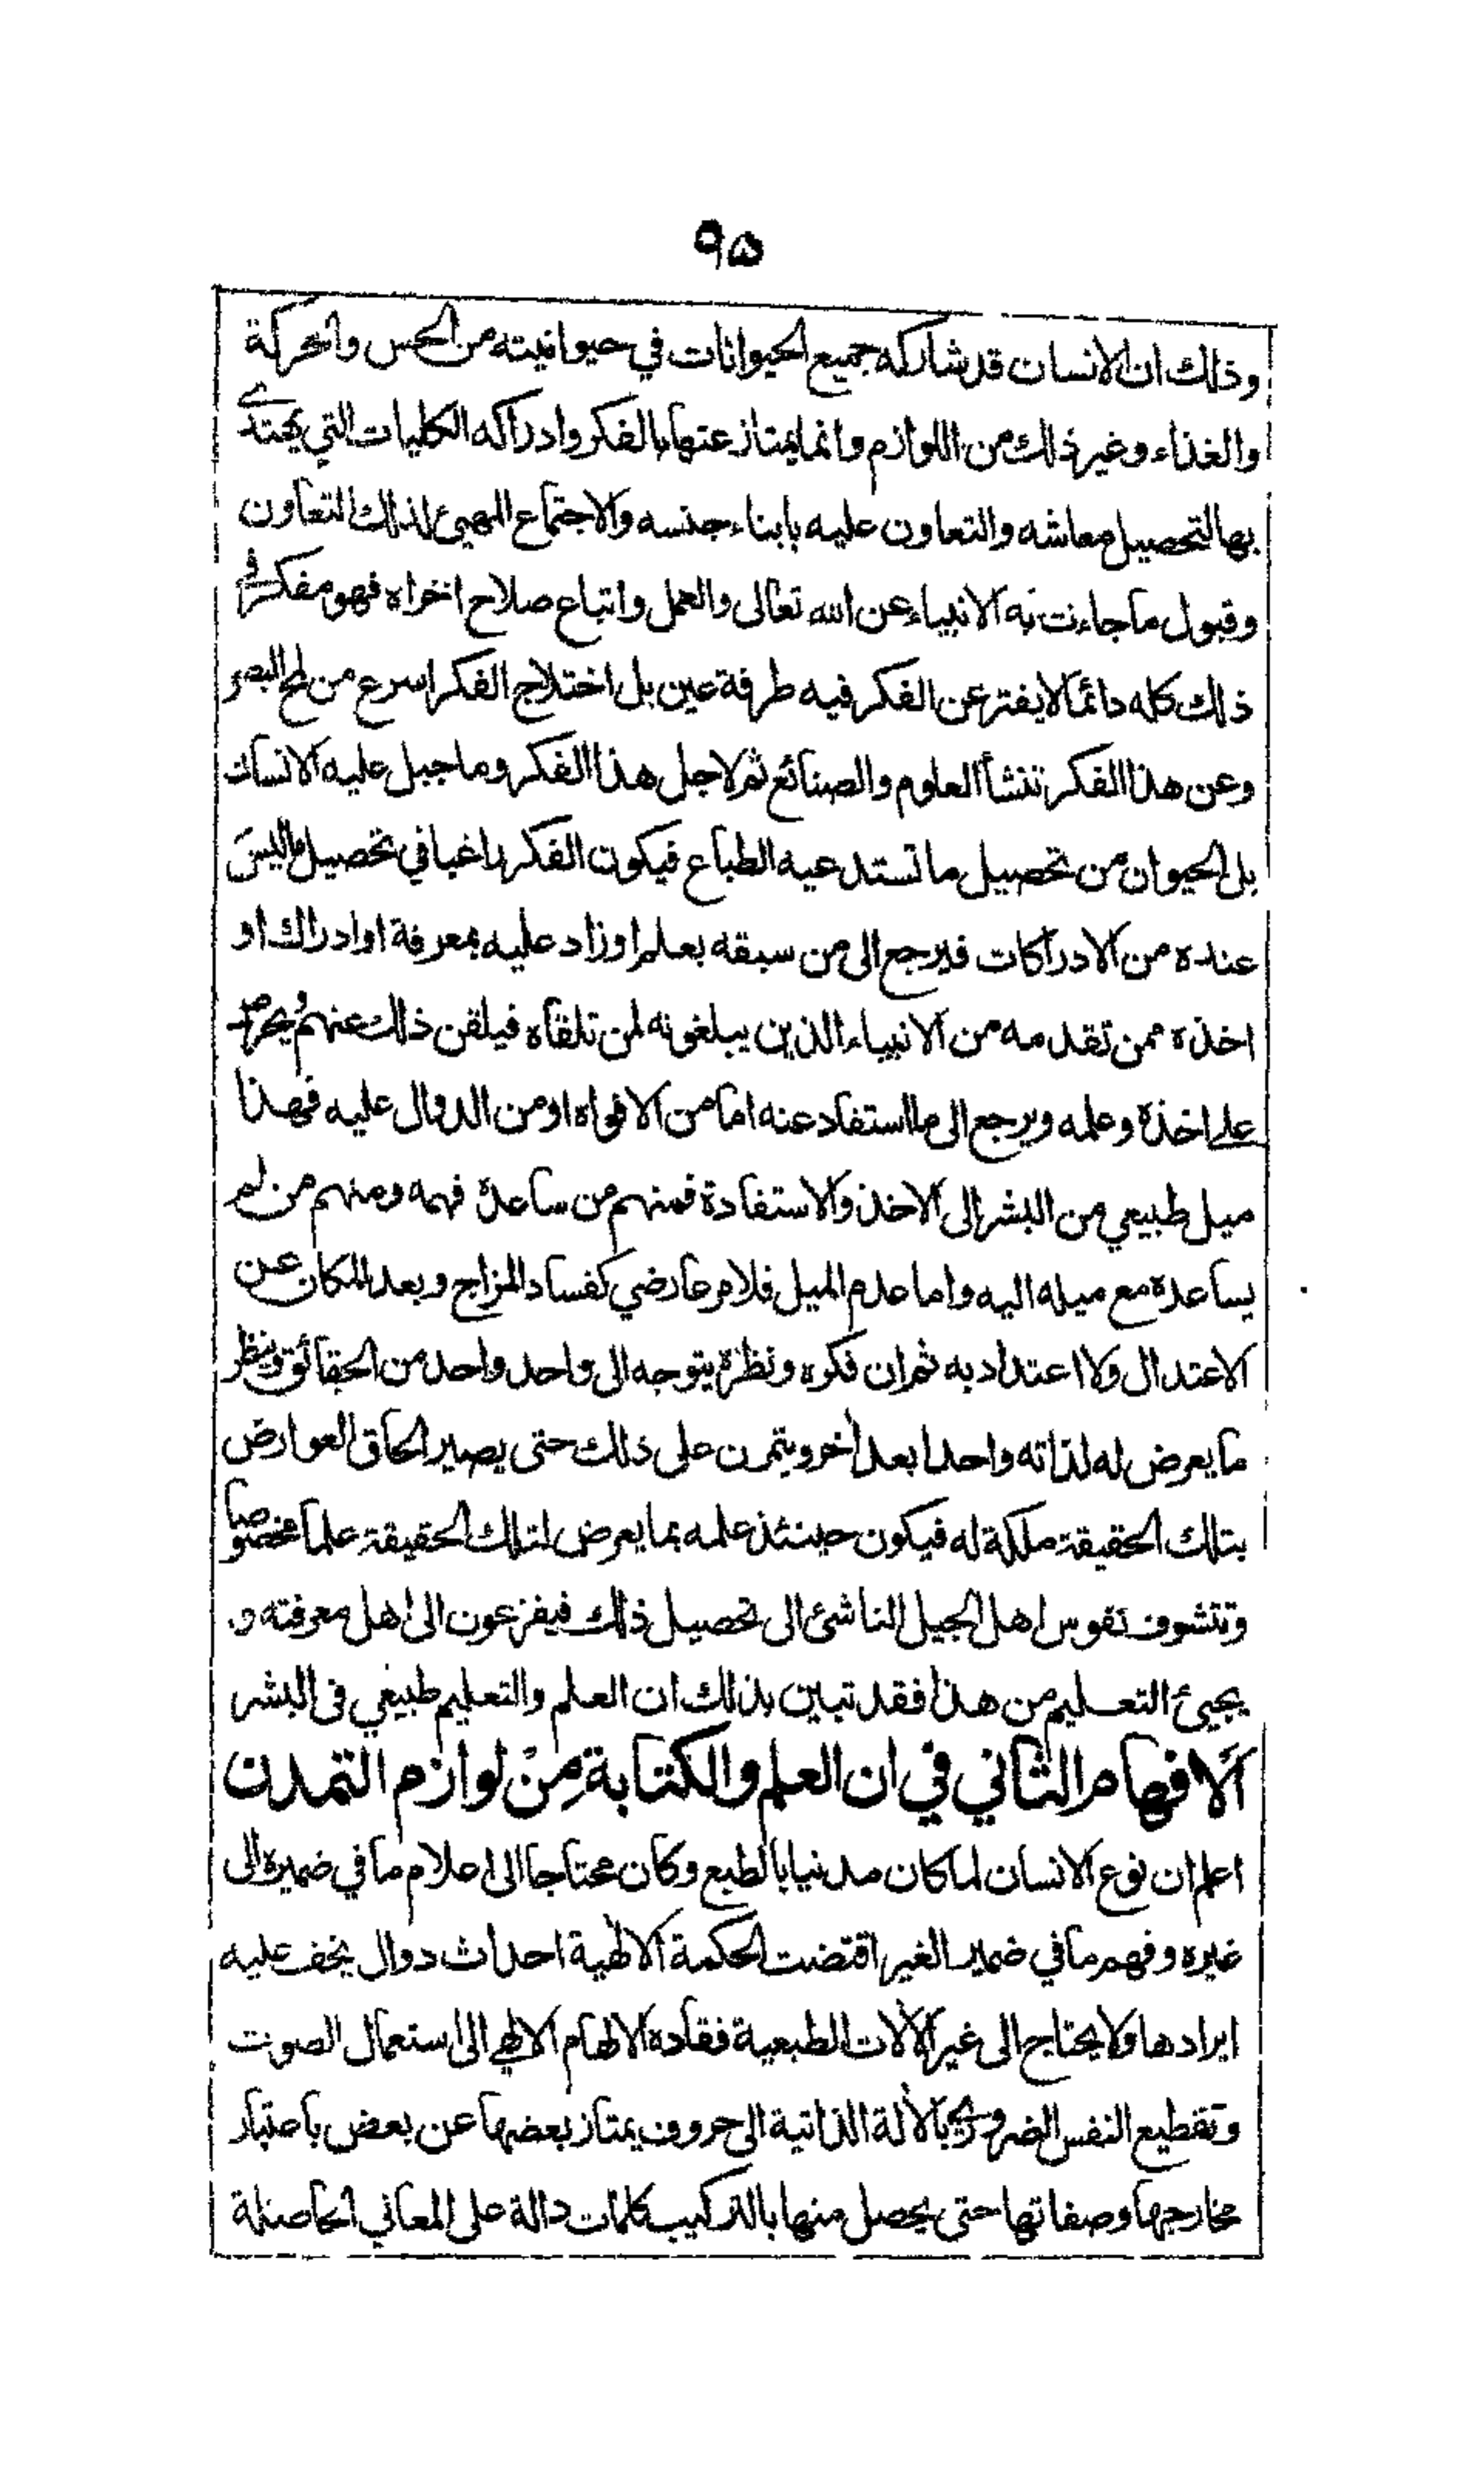 ٩۵
وذلك ان الانسان قد شاركه جميع الحيوانات في حيوانيته من الحس والحركة
والغذاء وغير ذلك من اللوازم وانما يمتاز عنها بالفكر وادراكه الكليات التي يهتدى
بها لتحصيل معاشه والتعاون عليه بابناء جنسه والاجتماع المهيئ لذلك التعاون
وقبول ما جاءت به الانبياء عن الله تعالى والعمل واتباع صلاح اخراه فهو مفكر في
ذلك كله دائما لا يفتر عن الفكر فيه طرفة عين بل اختلاج الفكر اسرع من لمح البصر
وعن هذا الفكر تنشأ العلوم والصنائع ثم لاجل هذا الفكر وما جبل عليه الانسان
بل الحيوان من تحصيل ما تستدعيه الطباع فيكون الفكر راغبا في تحصيل ما ليس
عنده من الادراكات فيرجع الى من سبقه بعلم او زاد عليه بمعرفة او ادراك او
اخذه ممن تقدمه من الانبياء الذين يبلغونه لمن تلقاه فيلقن ذلك عنهم ويحرص
على اخذه وعلمه ويرجع الى ما استفاد عنه اما من الافواه او من الدوال عليه فهذا
ميل طبيعي من البشر الى الاخذ والاستفادة فمنهم من ساعده فهمه ومنهم من لم
يساعده مع ميله اليه واما عدم الميل فلامر عارضي كفساد المزاج وبعد المكان عن
الاعتدال ولا اعتداد به ثم ان فكره ونظره يتوجه الى واحد واحد من الحقائق وينظر
ما يعرض له لذاته واحدا بعد أخر ويتمرن على ذلك حتى يصير الحاق العوارض
بتلك الحقيقة ملكة له فيكون حينئذ علمه بما يعرض لتلك الحقيقة علما مخصوصا
وتتشوف نفوس اهل الجيل الناشئ الى تحصيل ذلك فيفزعون الى اهل معرفته و
يجيئ التعليم من هذا فقد تبين بذلك ان العلم والتعليم طبيعي فى البشر
الافهام الثاني في ان العلم والكتابة من لوازم التمدن
اعلم ان نوع الانسان لما كان مدنيا بالطبع وكان محتاجا الى اعلام ما في ضميره الى
غيره وفهم ما في ضمير الغير اقتضت الحكمة الالهية احداث دوال يخف عليه
ايرادها ولا يحتاج الى غير الألات الطبعية فقاده الالهام الالهي الى استعمال الصوت
وتقطيع النفس الضروري بالألة الذاتية الى حروف يمتاز بعضها عن بعض باعتبار
مخارجها وصفاتها حتى يحصل منها بالتركيب كلمات دالة على المعاني الحاصلة